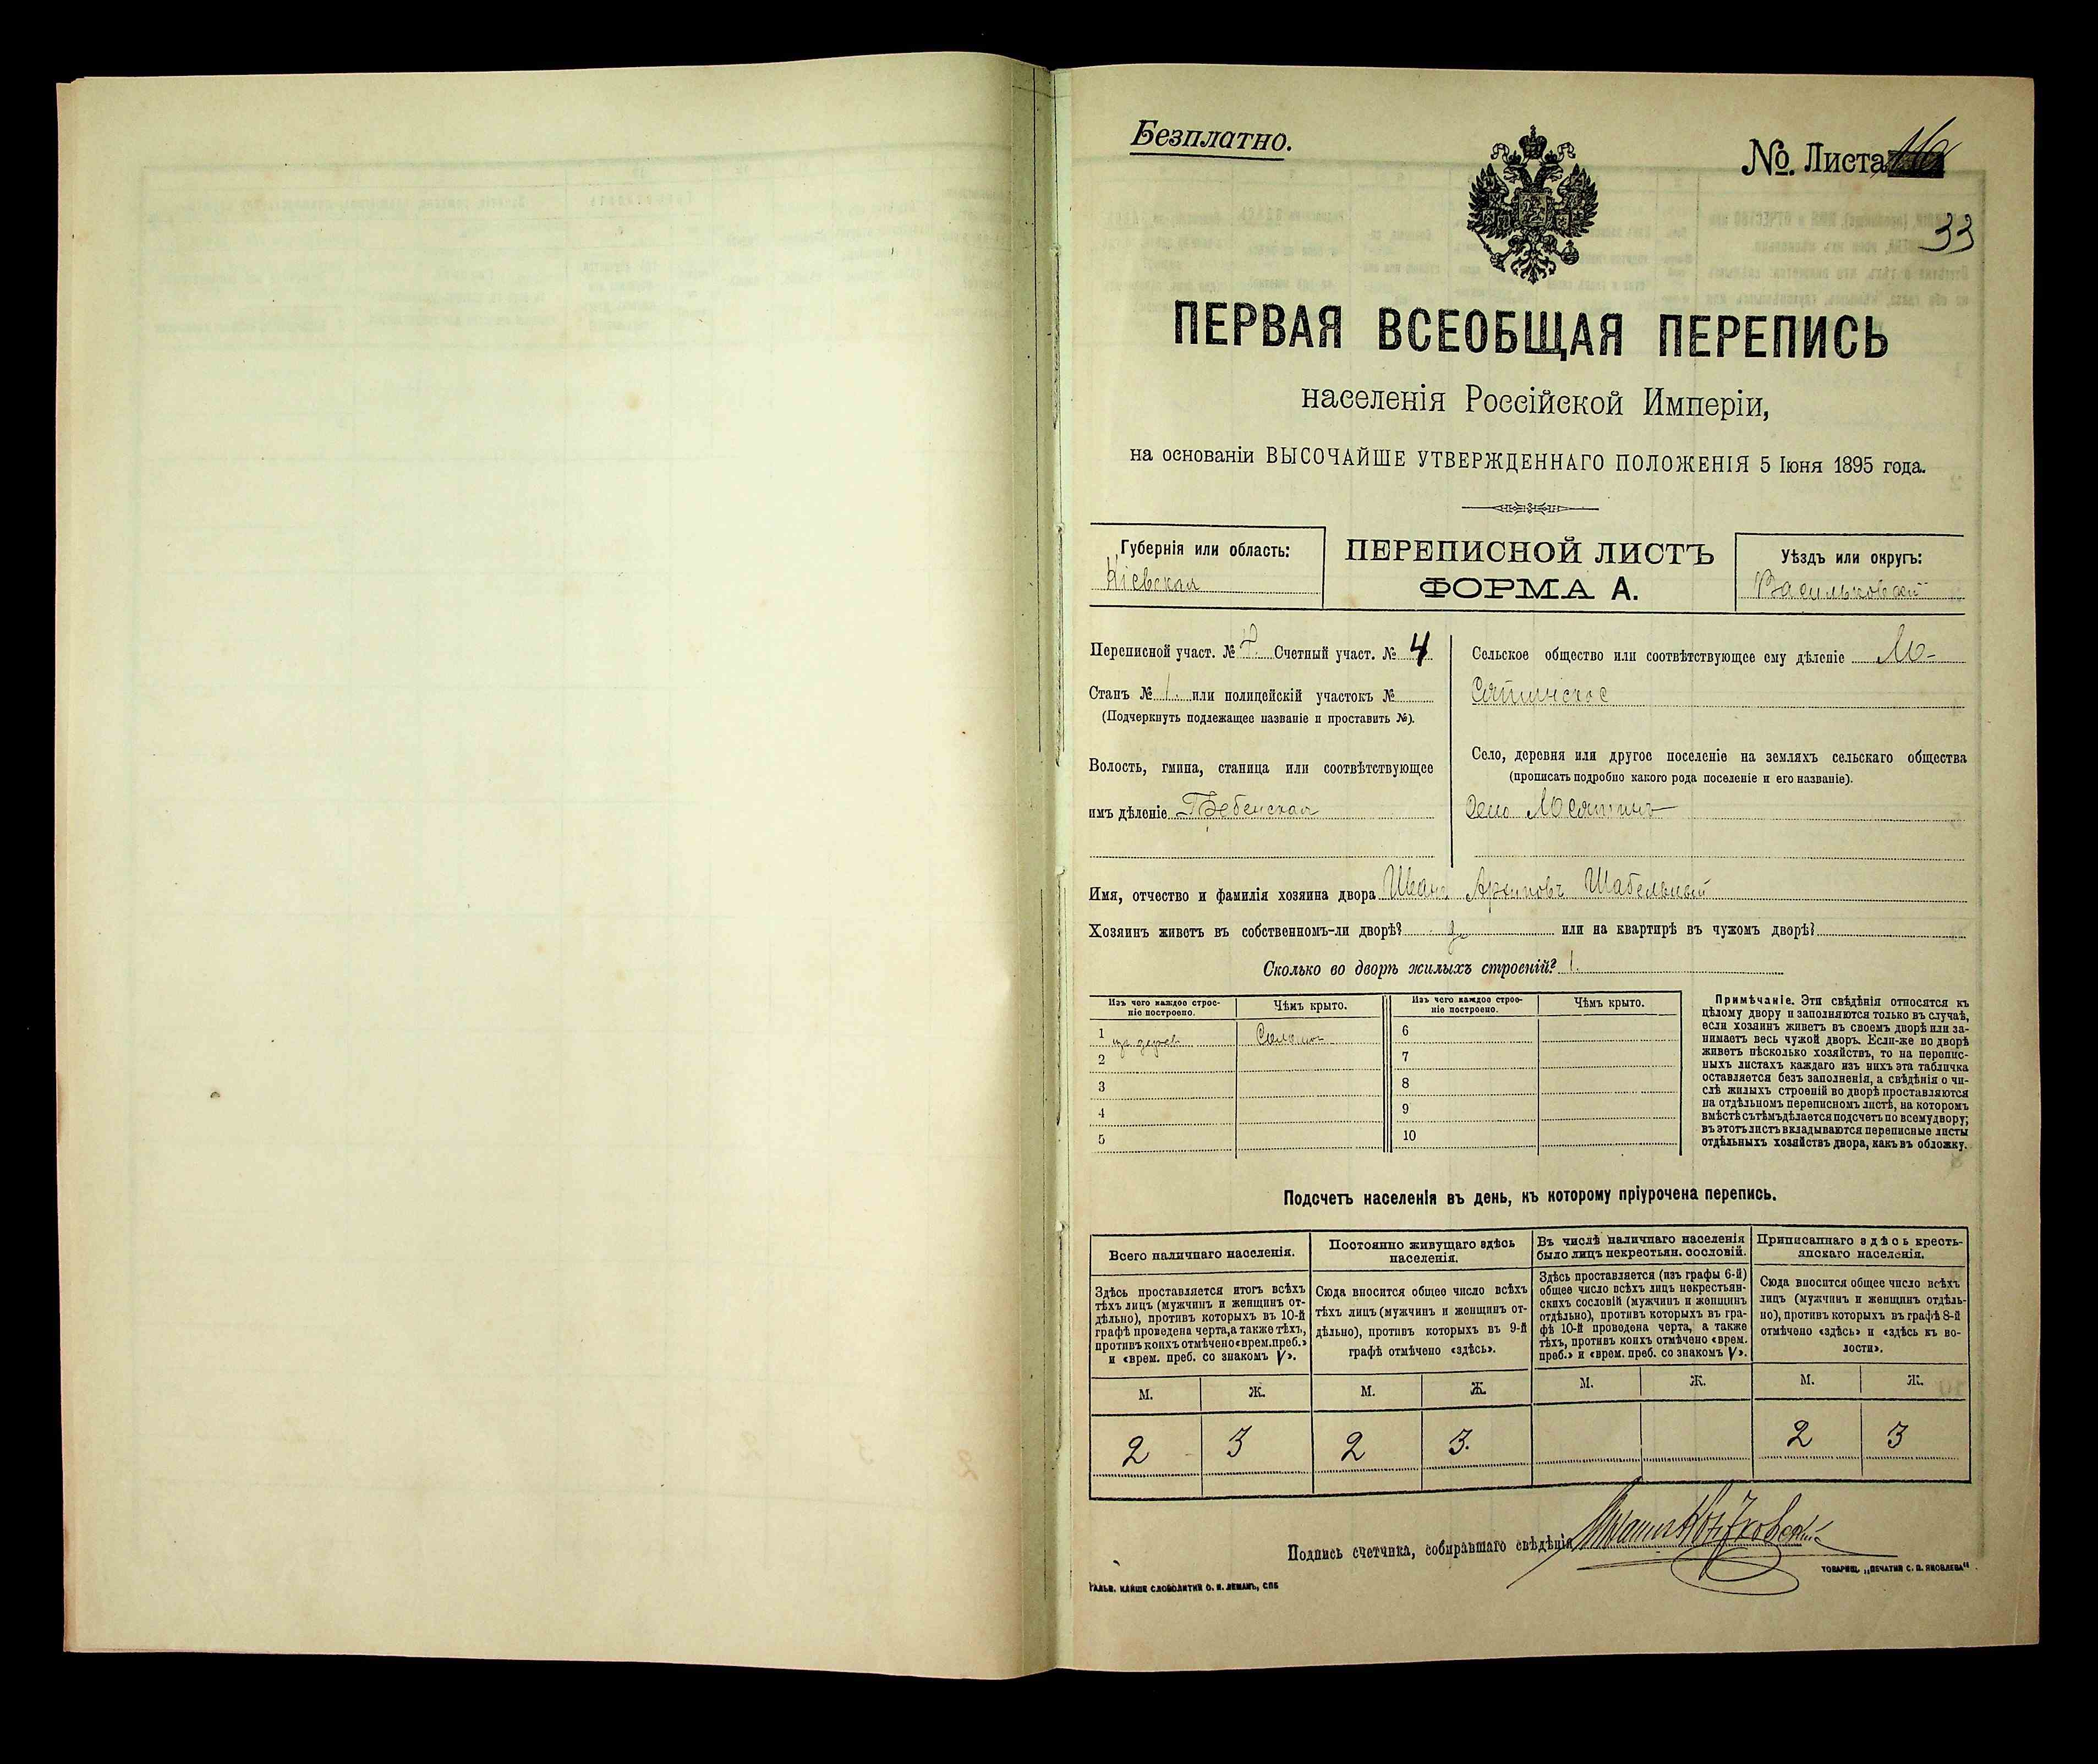 Безплатно.
№. Листа
33
ПЕРВАЯ ВСЕОБЩАЯ ПЕРЕПИСЬ
населенія Россійской Имперіи,
на основаніи ВЫСОЧАЙШЕ УТВЕРЖДЕННАГО ПОЛОЖЕНІЯ 5 Іюня 1895 года.
Губернія или область:
Кіевская
ПЕРЕПИСНОЙ ЛИСТЪ
ФОРМА А.
Уѣздъ или округъ:
Васильковскій
Переписной участ. № Счетный участ. № 4
Станъ № 1. или полицейскій участокъ №
(Подчеркнуть подлежащее названіе и проставить №).
Волость, гмина, станица или соотвѣтствующее
имъ дѣленіе
Сельское общество или соотвѣтствующее ему дѣленіе Ю-
сятинское
Село, деревня или другое поселеніе на земляхъ сельскаго общества
(прописать подробно какого рода поселеніе и его названіе).
Село Юсятинъ
Имя, отчество и фамилія хозяина двора Иванъ Архиповъ Шабельный
Хозяинъ живетъ въ собственномъ-ли дворѣ? или на квартирѣ въ чужомъ дворѣ?
Сколько во дворѣ жилыхъ строеній? 1.
Изъ чего каждое строе-
ніе построено.
Чѣмъ крыто.
Изъ чего каждое строе-
ніе построено.
Чѣмъ крыто.
1 изъ дерев Солом
2
3
4
5
6
7
8
9
10
Примѣчаніе. Эти свѣдѣнія относятся къ
цѣлому двору и заполняются только въ случаѣ,
если хозяинъ живетъ въ своемъ дворѣ или за-
нимаетъ весь чужой дворъ. Если-же во дворѣ
живетъ нѣсколько хозяйствъ, то на перепис-
ныхъ листахъ каждаго изъ нихъ эта табличка
оставляется безъ заполненія, а свѣдѣнія о чи-
слѣ жилыхъ строеній во дворѣ проставляются
на отдѣльномъ переписномъ листѣ, на которомъ
вмѣстѣ съ тѣмъ дѣлается подсчетъ по всему двору;
въ этотъ листъ вкладываются переписные листы
отдѣльныхъ хозяйствъ двора, какъ въ обложку.
Подсчетъ населенія въ день, къ которому пріурочена перепись.
Всего наличнаго населенія.
Здѣсь проставляется итогъ всѣхъ
тѣхъ лицъ (мужчинъ и женщинъ от-
дѣльно), противъ которыхъ въ 10-й
графѣ проведена черта, а также тѣхъ,
противъ коихъ отмѣчено «врем. преб.»
и «врем. преб. со знакомъ V».
М. Ж.
2 3
Постоянно живущаго здѣсь
населенія.
Сюда вносится общее число всѣхъ
тѣхъ лицъ (мужчинъ и женщинъ от-
дѣльно), противъ которыхъ въ 9-й
графѣ отмѣчено «здѣсь».
М. Ж.
2 3.
Въ числѣ наличнаго населенія
было лицъ некрестьян. сословій.
Здѣсь проставляется (изъ графы 6-й)
общее число всѣхъ лицъ некрестьян-
скихъ сословій (мужчинъ и женщинъ
отдѣльно), противъ которыхъ въ гра-
фѣ 10-й проведена черта, а также
тѣхъ, противъ коихъ отмѣчено «врем.
преб.» и «врем. преб. со знакомъ V».
М. Ж.
Приписаннаго здѣсь кресть-
янскаго населенія.
Сюда вносится общее число всѣхъ
лицъ (мужчинъ и женщинъ отдѣль-
но), противъ которыхъ въ графѣ 8-й
отмѣчено «здѣсь» и «здѣсь къ во-
лости».
М. Ж.
2 3
Подпись счетчика, собиравшаго свѣдѣнія
ГАЛЬВ. КЛИШЕ СЛОВОЛИТНИ О. И. ЛЕМАНЪ, СПБ
ТОВАРИЩ. „ПЕЧАТНЯ С. П. ЯКОВЛЕВА“